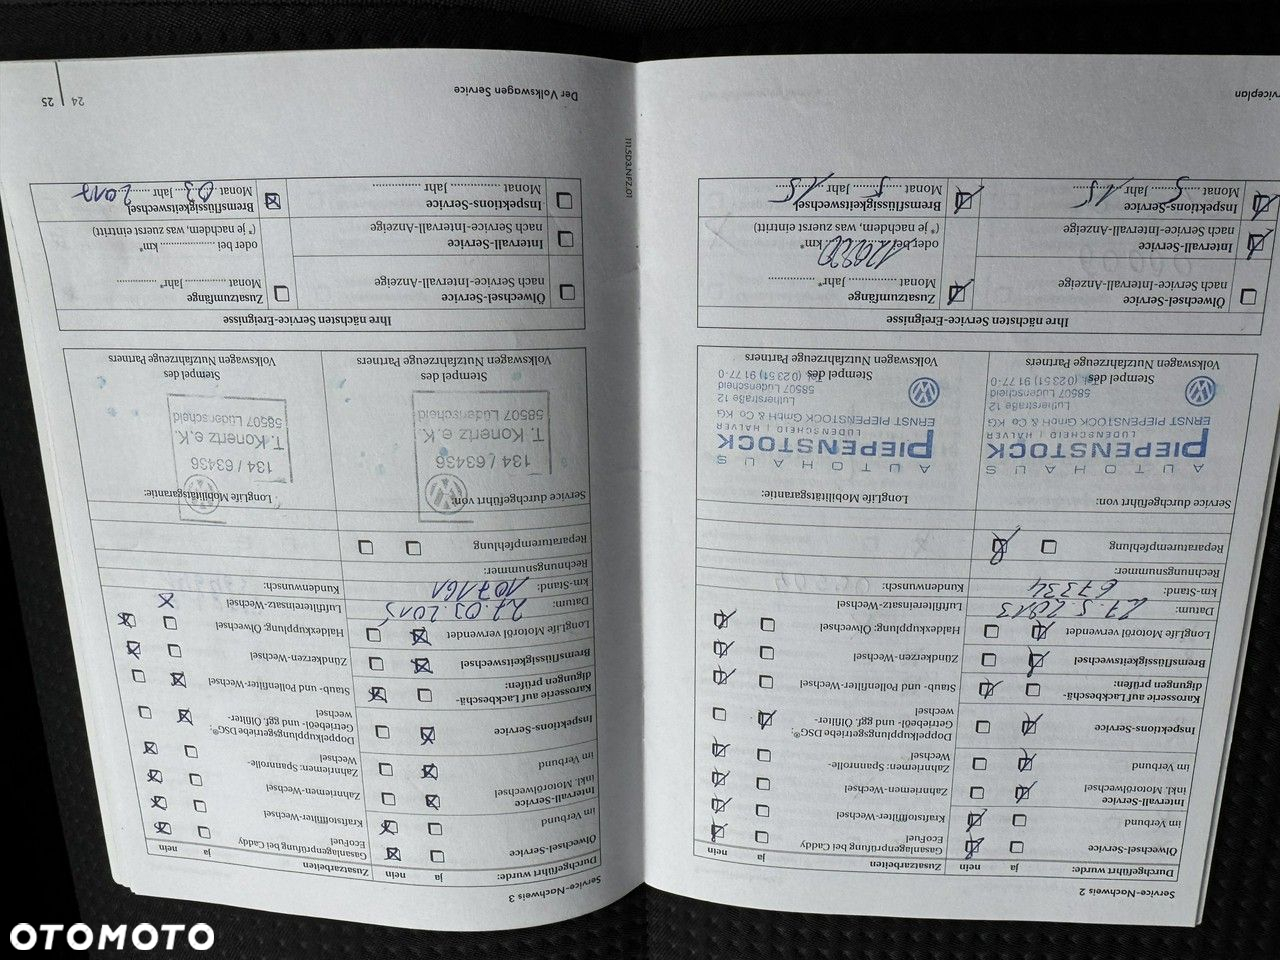 Service-Nachweis 2
Durchgeführt wurde: ja nein
Ölwechsel-Service
im Verbund
Intervall-Service
inkl. Motorölwechsel
im Verbund
Inspektions-Service
Karosserie auf Lackbeschä-
digungen prüfen:
Bremsflüssigkeitswechsel
LongLife Motoröl verwendet
Datum: 27.5.2013
km-Stand: 67334
Rechnungsnummer:
Reparaturempfehlung
Zusatzarbeiten ja nein
Gasanlagenprüfung bei Caddy
EcoFuel
Kraftstofffilter-Wechsel
Zahnriemen-Wechsel
Zahnriemen: Spannrolle-
Wechsel
Doppelkupplungsgetriebe DSG®:
Getriebeöl- und ggf. Ölfilter-
wechsel
Staub- und Pollenfilter-Wechsel
Zündkerzen-Wechsel
Haldexkupplung: Ölwechsel
Luftfiltereinsatz-Wechsel
Kundenwunsch:
Service durchgeführt von:
AUTOHAUS
PIEPENSTOCK
LÜDENSCHEID | HALVER
ERNST PIEPENSTOCK GmbH & Co KG
Lutherstraße 12
58507 Lüdenscheid
Tel. (0 23 51) 91 77-0
Stempel des
Volkswagen Nutzfahrzeuge Partners
LongLife Mobilitätsgarantie:
AUTOHAUS
PIEPENSTOCK
LÜDENSCHEID | HALVER
ERNST PIEPENSTOCK GmbH & Co KG
Lutherstraße 12
58507 Lüdenscheid
Tel. (0 23 51) 91 77-0
Stempel des
Volkswagen Nutzfahrzeuge Partners
Ihre nächsten Service-Ereignisse
Ölwechsel-Service
nach Service-Intervall-Anzeige
Intervall-Service
nach Service-Intervall-Anzeige
Inspektions-Service
Monat 5 Jahr 15
Zusatzumfänge
Monat ............ Jahr* ............
oder bei 120000 km*
(* je nachdem, was zuerst eintritt)
Bremsflüssigkeitswechsel
Monat 5 Jahr 15
Serviceplan
Service-Nachweis 3
Durchgeführt wurde: ja nein
Ölwechsel-Service
im Verbund
Intervall-Service
inkl. Motorölwechsel
im Verbund
Inspektions-Service
Karosserie auf Lackbeschä-
digungen prüfen:
Bremsflüssigkeitswechsel
LongLife Motoröl verwendet
Datum: 27.03.2015
km-Stand: 107161
Rechnungsnummer:
Reparaturempfehlung
Zusatzarbeiten ja nein
Gasanlagenprüfung bei Caddy
EcoFuel
Kraftstofffilter-Wechsel
Zahnriemen-Wechsel
Zahnriemen: Spannrolle-
Wechsel
Doppelkupplungsgetriebe DSG®:
Getriebeöl- und ggf. Ölfilter-
wechsel
Staub- und Pollenfilter-Wechsel
Zündkerzen-Wechsel
Haldexkupplung: Ölwechsel
Luftfiltereinsatz-Wechsel
Kundenwunsch:
Service durchgeführt von:
134 / 63436
T. Konertz e.K.
58507 Lüdenscheid
Stempel des
Volkswagen Nutzfahrzeuge Partners
LongLife Mobilitätsgarantie:
134 / 63436
T. Konertz e.K.
58507 Lüdenscheid
Stempel des
Volkswagen Nutzfahrzeuge Partners
Ihre nächsten Service-Ereignisse
Ölwechsel-Service
nach Service-Intervall-Anzeige
Intervall-Service
nach Service-Intervall-Anzeige
Inspektions-Service
Monat ............ Jahr ............
Zusatzumfänge
Monat ............ Jahr* ............
oder bei ............ km*
(* je nachdem, was zuerst eintritt)
Bremsflüssigkeitswechsel
Monat 03 Jahr 2017
Der Volkswagen Service
24 | 25
OTOMOTO